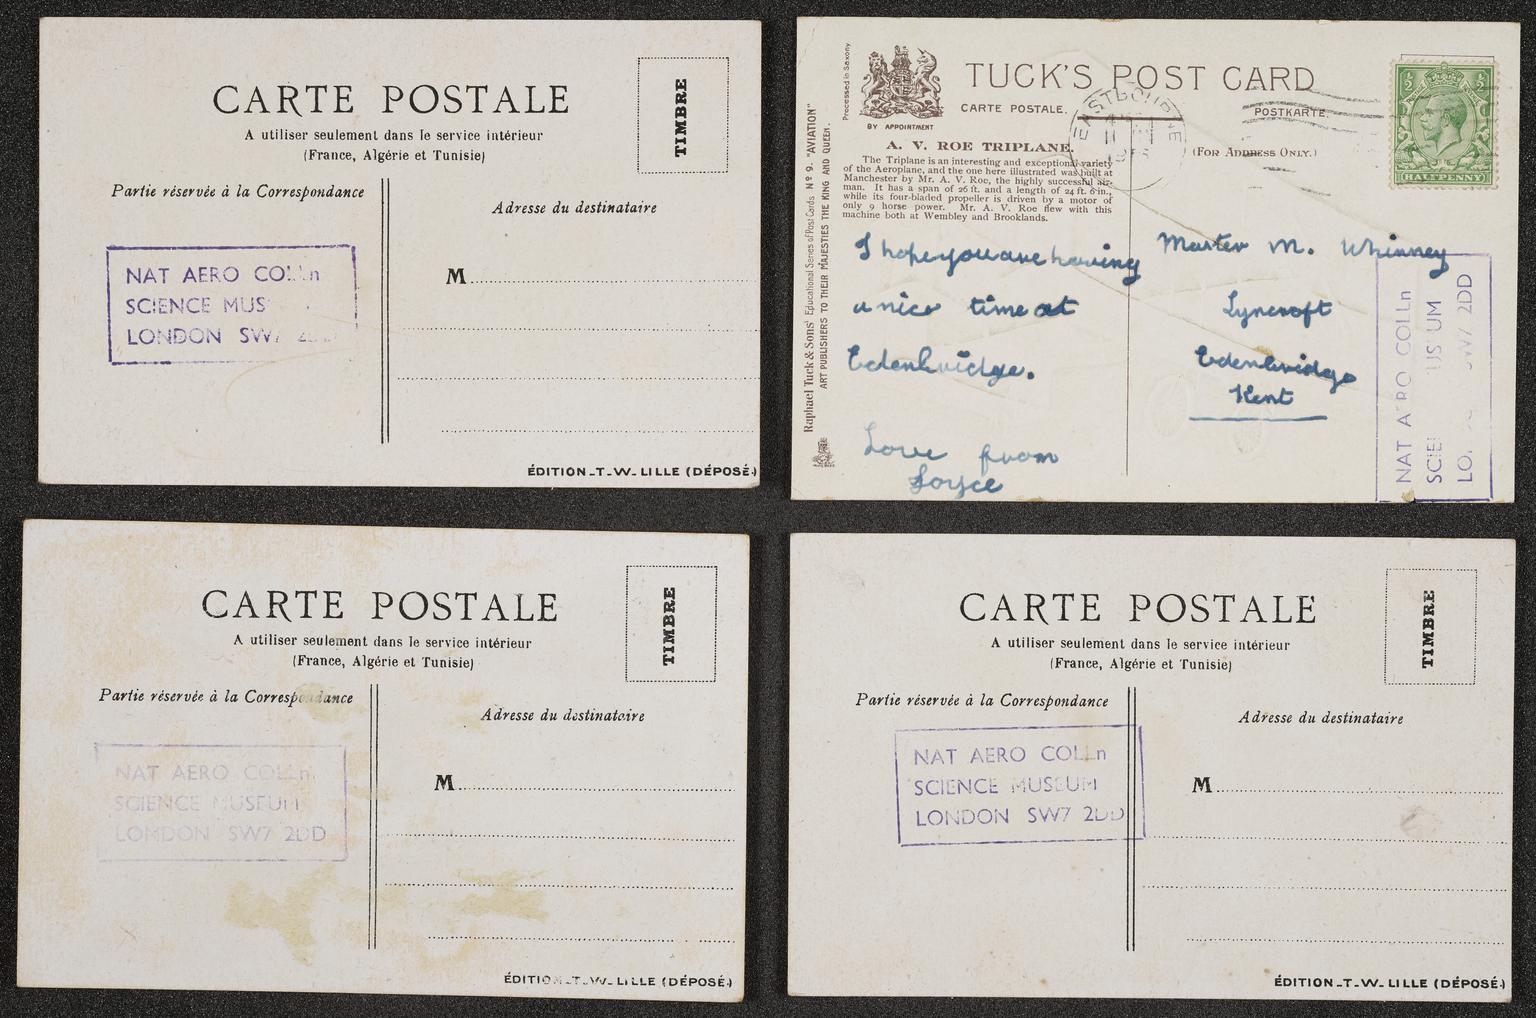 CARTE POSTALE
A utiliser seulement dans le service intérieur
(France, Algérie et Tunisie)
TIMBRE
Partie réservée à la Correspondance
Adresse du destinataire
NAT AERO COLLn
SCIENCE MUS
LONDON SW7 2DD
M
ÉDITION_T_W_LILLE (DÉPOSÉ)
Processed in Saxony
BY APPOINTMENT
TUCK'S POST CARD
CARTE POSTALE.
POSTKARTE.
EASTBOURNE
HALFPENNY
A. V. ROE TRIPLANE.
(FOR ADDRESS ONLY.)
The Triplane is an interesting and exceptional variety
of the Aeroplane, and the one here illustrated was built at
Manchester by Mr. A. V. Roe, the highly successful air-
man. It has a span of 26 ft. and a length of 24 ft. 6 in.,
while its four-bladed propeller is driven by a motor of
only 9 horse power. Mr. A. V. Roe flew with this
machine both at Wembley and Brooklands.
Raphael Tuck & Sons' Educational Series of Post Cards Nº 9. "AVIATION"
ART PUBLISHERS TO THEIR MAJESTIES THE KING AND QUEEN.
I hope you are having
a nice time at
Edenbridge.
Love from
Joyce
Master M. Whinney
Lyncroft
Edenbridge
Kent
NAT AERO COLLn
SCIE US UM
LO. SW7 2DD
CARTE POSTALE
A utiliser seulement dans le service intérieur
(France, Algérie et Tunisie)
TIMBRE
Partie réservée à la Correspondance
Adresse du destinataire
NAT AERO COLLn
SCIENCE MUSEUM
LONDON SW7 2DD
M
ÉDITION_T_W_LILLE (DÉPOSÉ)
CARTE POSTALE
A utiliser seulement dans le service intérieur
(France, Algérie et Tunisie)
TIMBRE
Partie réservée à la Correspondance
Adresse du destinataire
NAT AERO COLLn
SCIENCE MUSEUM
LONDON SW7 2DD
M
ÉDITION_T_W_LILLE (DÉPOSÉ)